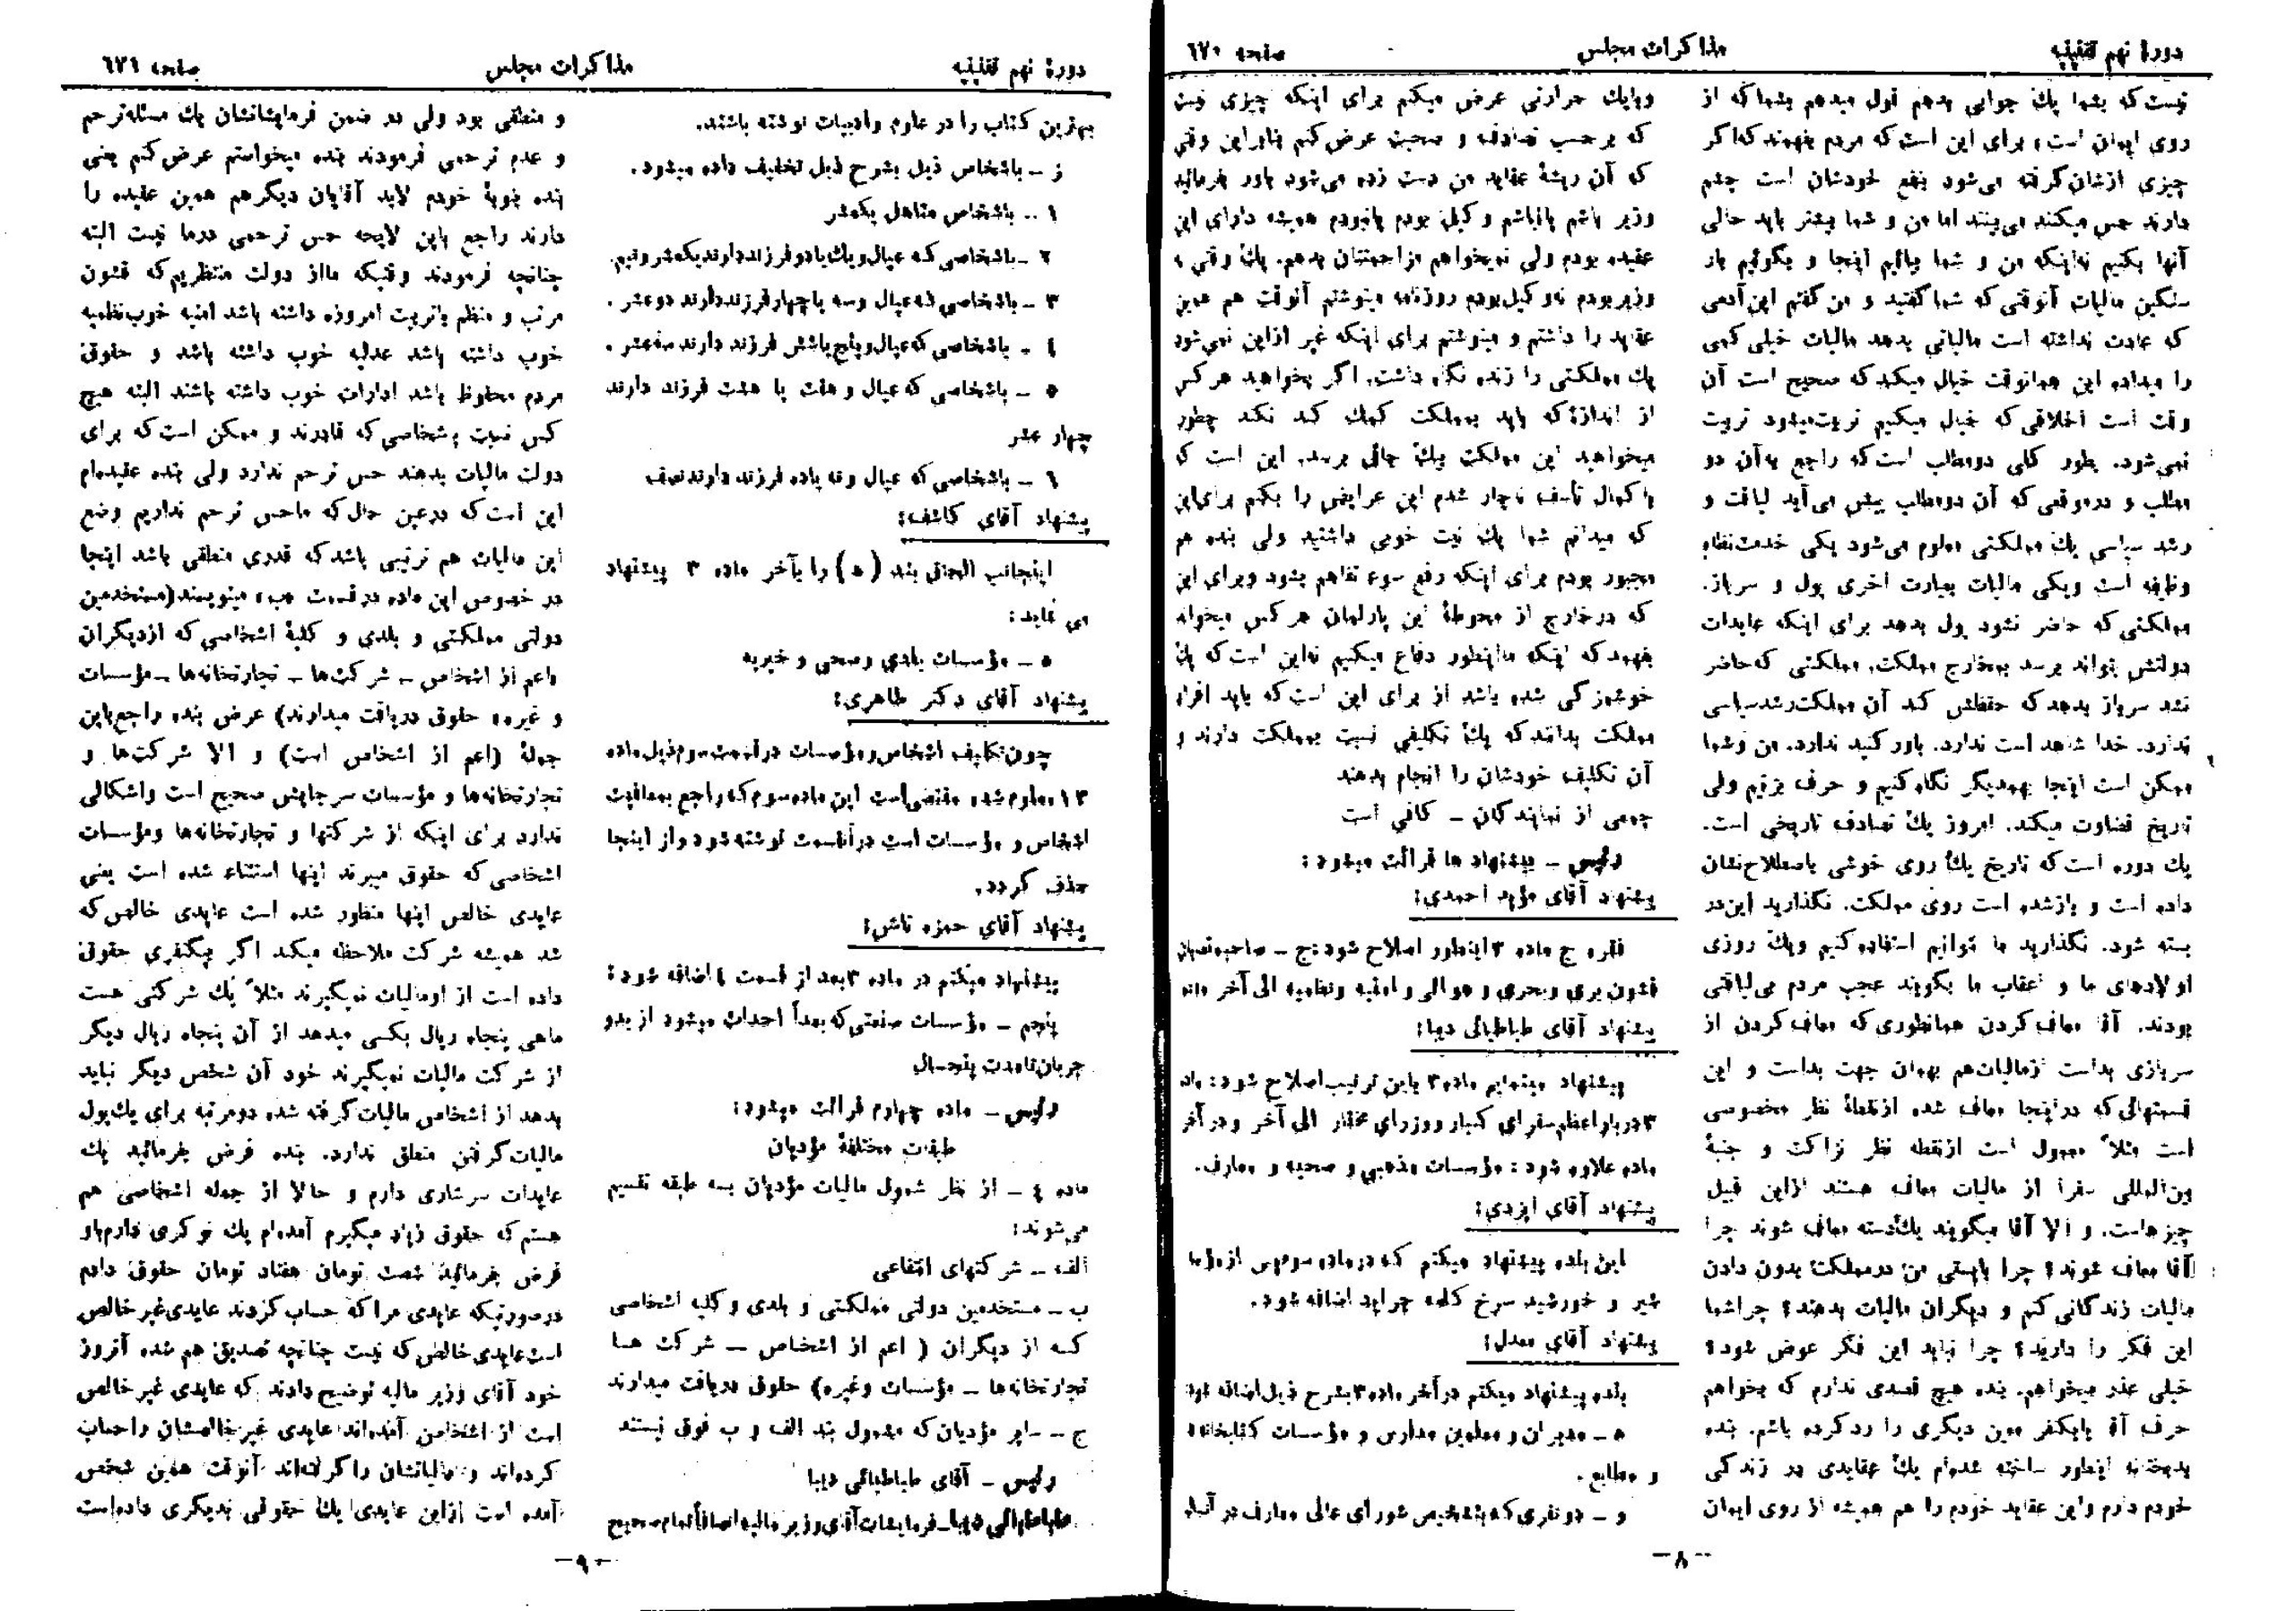 دورهٔ نهم تقنینیه
مذاکرات مجلس
صفحه ٦٧٠
نیست که بشما یك جوابی بدهم قول میدهم بشما که از
روی ایمان است، برای این است که مردم بفهمند که اگر
چیزی ازشان گرفته می‌شود بنفع خودشان است چشم
دارند حس میکنند می‌بینند اما من و شما بیشتر باید حالی
آنها بکنیم نه اینکه من و شما بیائیم اینجا و بگوئیم بار
سنگین مالیات آنوقتی که شما گفتید و من گفتم این آدمی
که عادت نداشته است مالیاتی بدهد مالیات خیلی کمی
را میداده این همانوقت خیال میکند که صحیح است آن
وقت است اخلاقی که خیال میکنیم تربیت میشود تربیت
نمی‌شود. بطور کلی دو مطلب است که راجع به آن دو
مطلب و در موقعی که آن دو مطلب پیش می‌آید لیاقت و
رشد سیاسی یك مملکتی معلوم می‌شود یکی خدمت نظام
وظیفه است و یکی مالیات بعبارت اخری پول و سرباز.
مملکتی که حاضر نشود پول بدهد برای اینکه عایدات
دولتش بتواند برسد بمخارج مملکت، مملکتی که حاضر
نشد سرباز بدهد که حفظش کند آن مملکت رشد سیاسی
ندارد. خدا شاهد است ندارد. باور کنید ندارد. من و شما
ممکن است اینجا بهمدیگر نگاه کنیم و حرف بزنیم ولی
تاریخ قضاوت میکند. امروز یك تصادف تاریخی است.
یك دوره است که تاریخ یك روی خوشی باصطلاح نشان
داده است و باز شده است روی مملکت. نگذارید این در
بسته شود. نگذارید ما نتوانیم استفاده کنیم و یك روزی
اولادهای ما و اعقاب ما بگویند عجب مردم بی‌لیاقتی
بودند. آقا معاف کردن همانطوری که معاف کردن از
سربازی بد است از مالیات هم بهمان جهت بد است و این
قسمتهائی که در اینجا معاف شده از نقطهٔ نظر مخصوصی
است مثلاً معمول است از نقطه نظر نزاکت و جنبهٔ
بین‌المللی سفرا از مالیات معاف هستند از این قبیل
چیزهاست. و الا آقا میگویند یك دسته معاف شوند چرا
آقا معاف شوند؟ چرا بایستی من در مملکت بدون دادن
مالیات زندگانی کنم و دیگران مالیات بدهند؟ چرا شما
این فکر را دارید؟ چرا نباید این فکر عوض شود؟
خیلی عذر میخواهم. بنده هیچ قصدی ندارم که بخواهم
حرف آقا یا یکنفر معین دیگری را رد کرده باشم. بنده
بدبختانه اینطور ساخته شده‌ام یك عقایدی در زندگی
خودم دارم و این عقاید خودم را هم همیشه از روی ایمان
و با یك حرارتی عرض میکنم برای اینکه چیزی نیست
که برحسب تصادف و صحبت عرض کنم بنابراین وقتی
که آن ریشهٔ عقاید من دست زده می‌شود باور بفرمائید
وزیر باشم یا نباشم وکیل بودم یا نبودم همیشه دارای این
عقیده بودم ولی نمیخواهم مزاحمتتان بدهم. یك وقتی نه
وزیر بودم نه وکیل بودم روزنامه مینوشتم آنوقت هم همین
عقاید را داشتم و مینوشتم برای اینکه غیر از این نمی‌شود
یك مملکتی را زنده نگاه داشت. اگر بخواهید هر کس
از اندازهٔ که باید بمملکت کمك کند نکند چطور
میخواهید این مملکت بیك جائی برسد. این است که
با کمال تأسف ناچار شدم این عرایض را بکنم برای این
که میدانم شما یك نیت خوبی داشتید ولی بنده هم
مجبور بودم برای اینکه رفع سوء تفاهم بشود و برای این
که در خارج از محوطهٔ این پارلمان هر کس میخواند
بفهمد که اینکه ما اینطور دفاع میکنیم نه این است که یك
خوشمزگی شده باشد از برای این است که باید افراد
مملکت بدانند که یك تکلیفی نسبت بمملکت دارند و
آن تکلیف خودشان را انجام بدهند
جمعی از نمایندگان ـ کافی است
رئیس ـ پیشنهاد ها قرائت میشود:
پیشنهاد آقای مؤید احمدی:
فقره ج ماده ٣ اینطور اصلاح شود: ج ـ صاحبمنصبان
قشون بری و بحری و هوائی و امنیه و نظمیه الی آخر ماده
پیشنهاد آقای طباطبائی دیبا:
پیشنهاد مینمایم ماده ٣ باین ترتیب اصلاح شود: ماده
٣ دربار اعظم سفرای کبار و وزرای مختار الی آخر و در آخر
ماده علاوه شود: مؤسسات مذهبی و صحیه و معارف.
پیشنهاد آقای ایزدی:
این بنده پیشنهاد میکنم که در ماده سوم پس از
شیر و خورشید سرخ کلمه جراید اضافه شود.
پیشنهاد آقای معدل:
بنده پیشنهاد میکنم در آخر ماده ٣ بشرح ذیل اضافه شود
ه ـ مدیران و معلمین مدارس و مؤسسات کتابخانه
و مطابع.
و ـ دو نفری که بتشخیص شورای عالی معارف در آنسال
ـ٨ـ
دورهٔ نهم تقنینیه
مذاکرات مجلس
صفحه ٦٧١
بهترین کتاب را در علوم و ادبیات نوشته باشند.
ز ـ باشخاص ذیل بشرح ذیل تخفیف داده میشود.
١ ـ باشخاص متاهل یکعشر
٢ ـ باشخاصی که عیال و یك یا دو فرزند دارند یکعشر و نیم.
٣ ـ باشخاصی که عیال و سه یا چهار فرزند دارند دو عشر.
٤ ـ باشخاصی که عیال و پنج یا شش فرزند دارند سه عشر.
٥ ـ باشخاصی که عیال و هفت یا هشت فرزند دارند
چهار عشر
٦ ـ باشخاصی که عیال و نه یا ده فرزند دارند نصف
پیشنهاد آقای کاشف:
اینجانب الحاق بند (ه) را بآخر ماده ٣ پیشنهاد
می نماید:
ه ـ مؤسسات بلدی و صحی و خیریه
پیشنهاد آقای دکتر طاهری:
چون تکلیف اشخاص و مؤسسات در قسمت سوم ذیل ماده
١٣ معلوم شده مقتضی است این ماده سوم که راجع بمعافیت
اشخاص و مؤسسات است در آنقسمت نوشته شود و از اینجا
حذف گردد.
پیشنهاد آقای حمزه تاش:
پیشنهاد میکنم در ماده ٣ بعد از قسمت ٤ اضافه شود:
پنجم ـ مؤسسات صنعتی که بعداً احداث میشود از بدو
جریان تا مدت پنجسال
رئیس ـ ماده چهارم قرائت میشود:
طبقات مختلفهٔ مؤدیان
ماده ٤ ـ از نظر شمول مالیات مؤدیان بسه طبقه تقسیم
می‌شوند:
الف ـ شرکتهای انتفاعی
ب ـ مستخدمین دولتی مملکتی و بلدی و کلیه اشخاصی
کسه از دیگران ( اعم از اشخاص ـ شرکت هسا
تجارتخانه‌ها ـ مؤسسات و غیره) حقوق دریافت میدارند
ج ـ سایر مؤدیان که مشمول بند الف و ب فوق نیستند
رئیس ـ آقای طباطبائی دیبا
طباطبائی دیبا ـ فرمایشات آقای وزیر مالیه انصافاً تمام صحیح
و منطقی بود ولی در ضمن فرمایشاتشان یك مسئله ترحم
و عدم ترحمی فرمودند بنده میخواستم عرض کنم یعنی
بنده بنوبهٔ خودم لابد آقایان دیگر هم همین عقیده را
دارند راجع باین لایحه حس ترحمی در ما نیست البته
چنانچه فرمودند وقتیکه ما از دولت منتظریم که قشون
مرتب و منظم با تربیت امروزه داشته باشد امنیه خوب نظمیه
خوب داشته باشد عدلیه خوب داشته باشد و حقوق
مردم محفوظ باشد ادارات خوب داشته باشند البته هیچ
کس نسبت باشخاصی که قادرند و ممکن است که برای
دولت مالیات بدهند حس ترحم ندارد ولی بنده عقیده‌ام
این است که در عین حال که ما حس ترحم نداریم وضع
این مالیات هم ترتیبی باشد که قدری منطقی باشد اینجا
در خصوص این ماده در قسمت «ب» مینویسند (مستخدمین
دولتی مملکتی و بلدی و کلیهٔ اشخاصی که از دیگران
«اعم از اشخاص ـ شرکت‌ها ـ تجارتخانه‌ها ـ مؤسسات
و غیره» حقوق دریافت میدارند) عرض بنده راجع باین
جملهٔ (اعم از اشخاص است) و الا شرکت‌ها و
تجارتخانه‌ها و مؤسسات سر جایش صحیح است و اشکالی
ندارد برای اینکه از شرکتها و تجارتخانه‌ها و مؤسسات
اشخاصی که حقوق میبرند اینها استثناء شده است یعنی
عایدی خالص اینها منظور شده است عایدی خالص که
شد همیشه شرکت ملاحظه میکند اگر بیکنفری حقوق
داده است از او مالیات نمیگیرند مثلاً یك شرکتی هست
ماهی پنجاه ریال بکسی میدهد از آن پنجاه ریال دیگر
از شرکت مالیات نمیگیرند خود آن شخص دیگر نباید
بدهد از اشخاص مالیات گرفته شده دو مرتبه برای یك پول
مالیات گرفتن منطق ندارد. بنده فرض بفرمائید یك
عایدات سرشاری دارم و حالا از جمله اشخاصی هم
هستم که حقوق زیاد میگیرم آمده‌ام یك نوکری دارم باو
فرض بفرمائید شصت تومان هفتاد تومان حقوق دادم
در صورتیکه عایدی مرا که حساب کردند عایدی غیر خالص
است عایدی خالص که نیست چنانچه تصدیق هم شده آنروز
خود آقای وزیر مالیه توضیح دادند که عایدی غیر خالص
است از اشخاص آمده‌اند عایدی غیر خالصشان را حساب
کرده‌اند و مالیاتشان را گرفته‌اند آنوقت همین شخص
آمده است از این عایدی یك حقوقی بدیگری داده است
ـ٩ـ